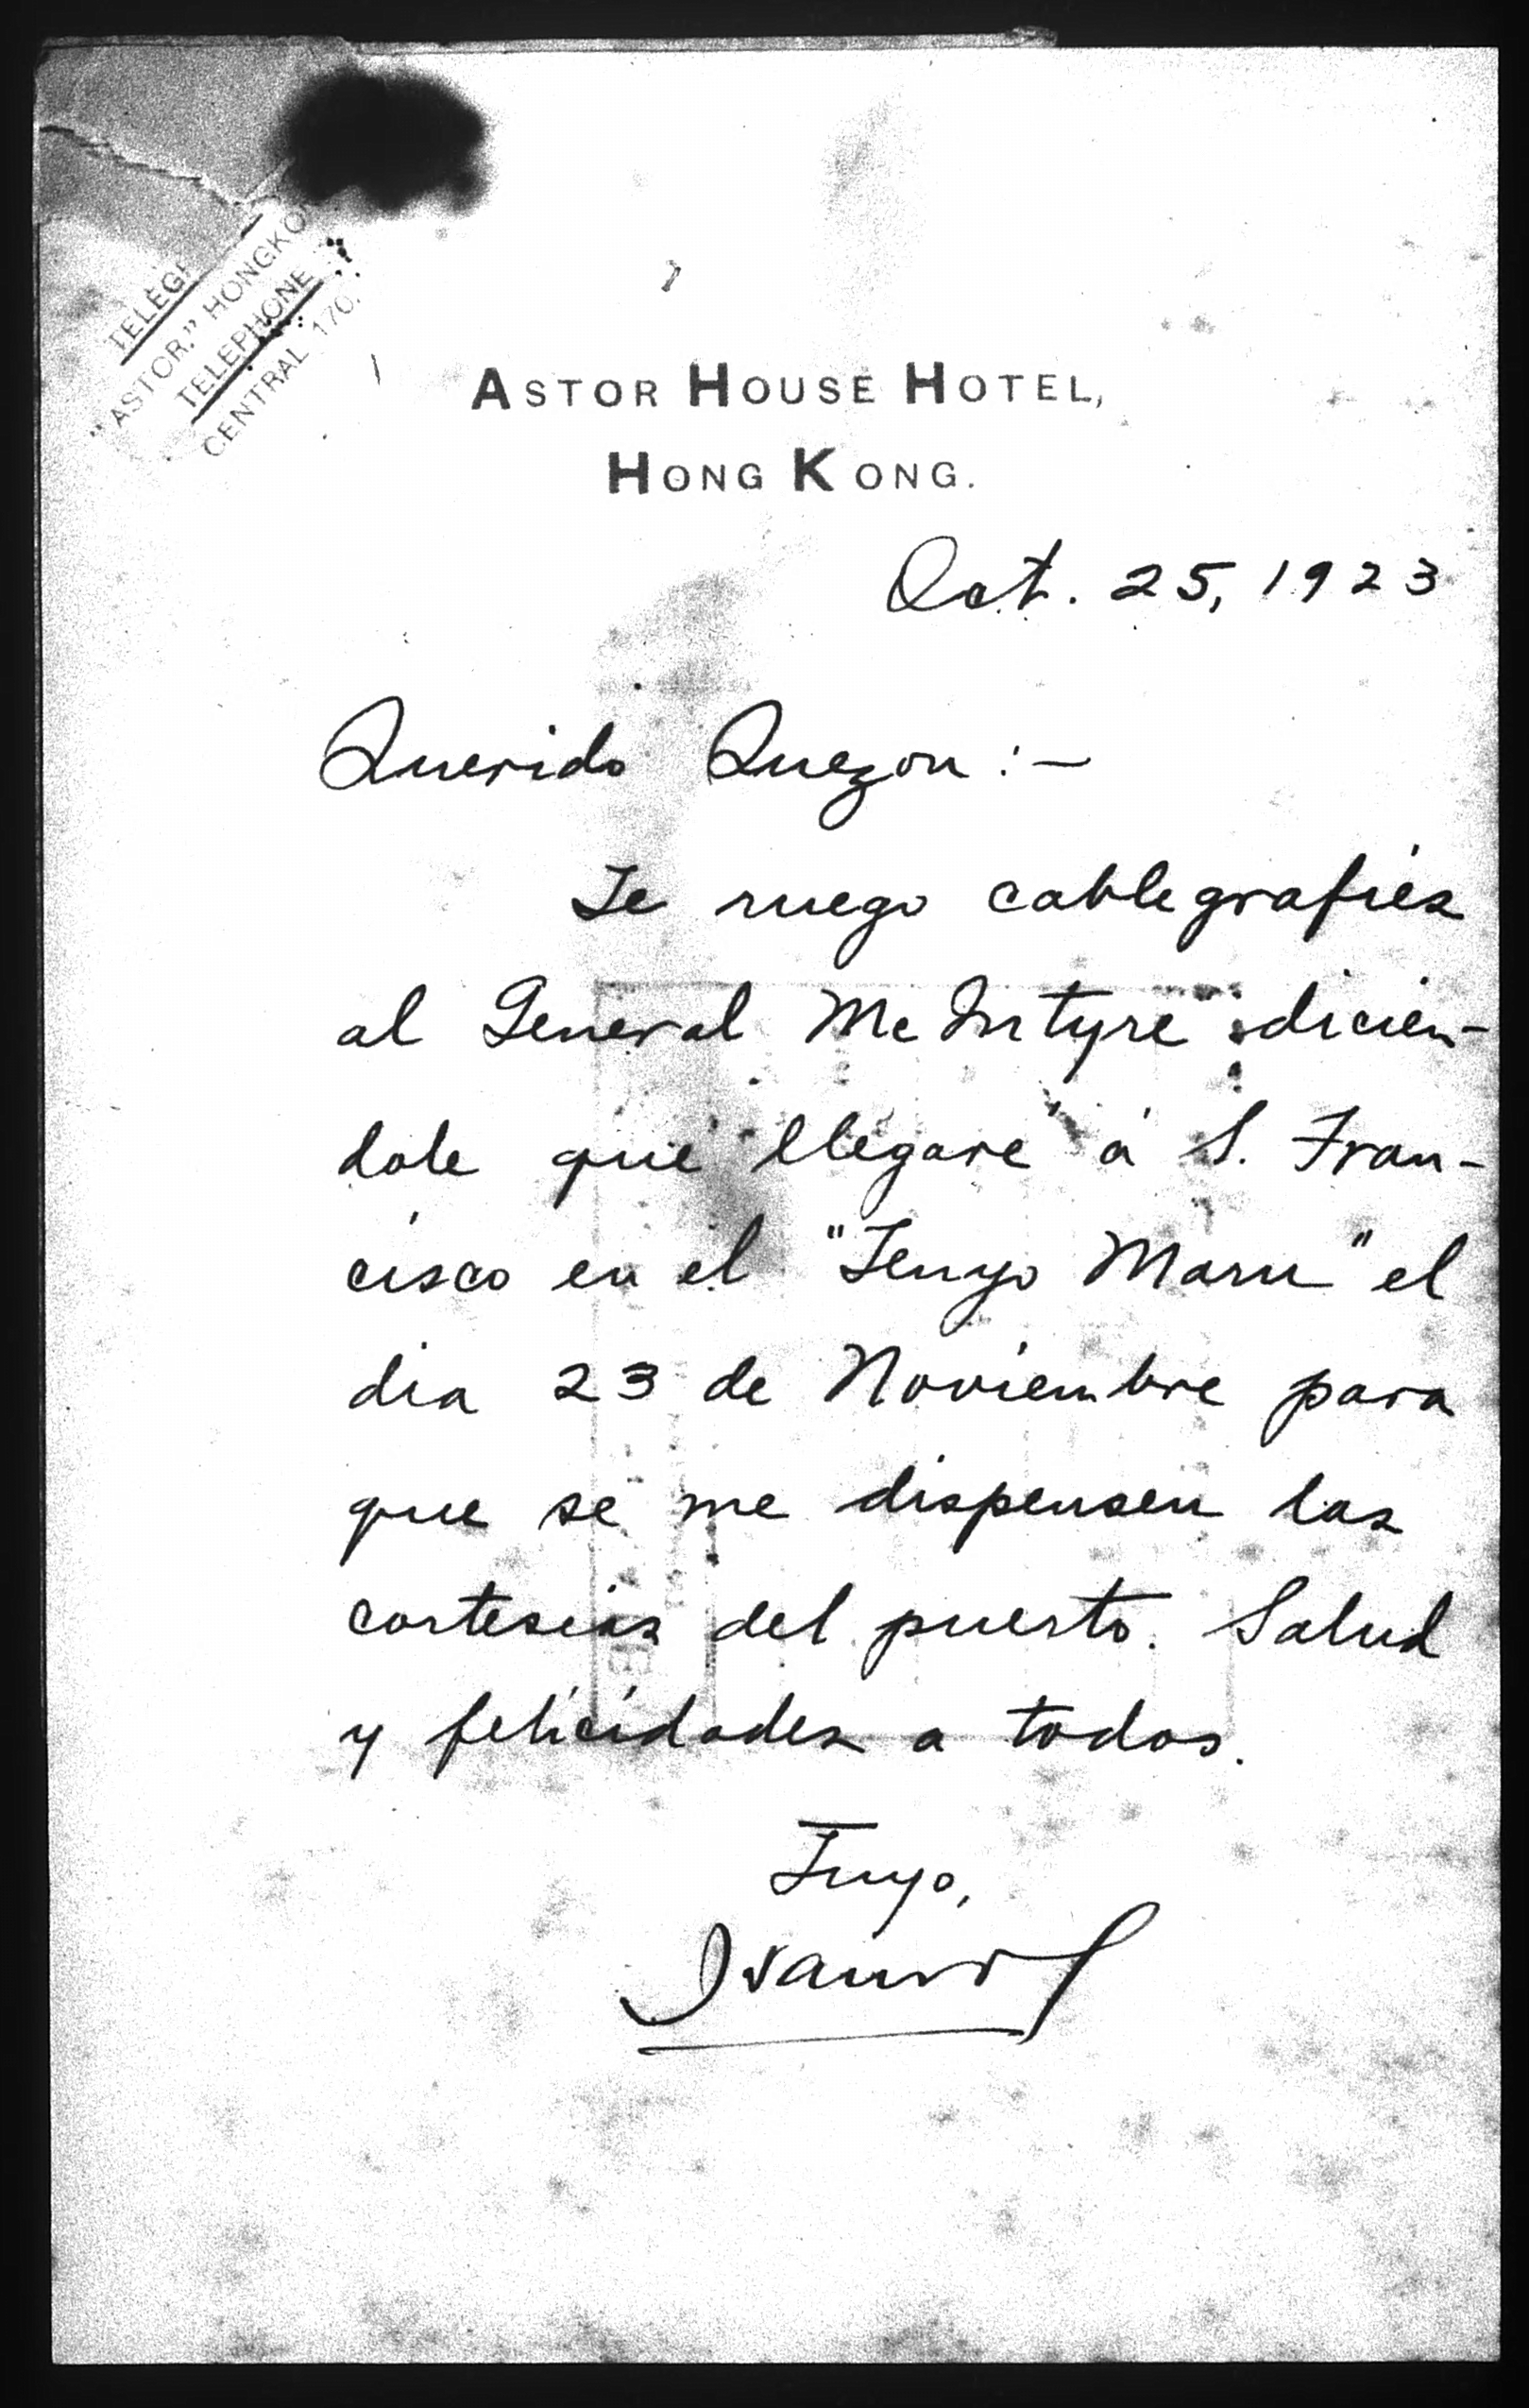 TELEG
"ASTOR," HONGKO
TELEPHONE
CENTRAL 170.
ASTOR HOUSE HOTEL,
HONG KONG.
Oct. 25, 1923
Querido Quezon:—
Te ruego cablegrafies
al General McIntyre dicien-
dole que llegare á S. Fran-
cisco en el "Tenyo Maru" el
dia 23 de Noviembre para
que se me dispensen las
cortesias del puerto. Salud
y felicidades a todos.
Tuyo,